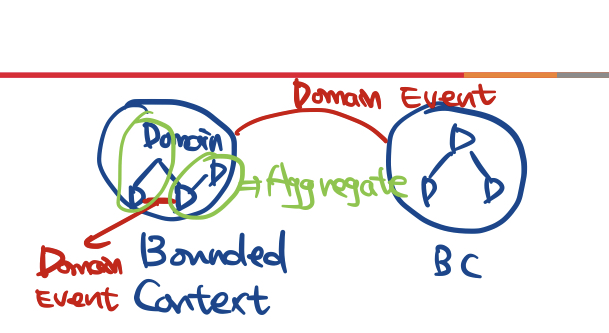 Domain Event
Domain
D
D
D
D
D
D
⇒Aggregate
Domain
Event
Bounded
Context
BC